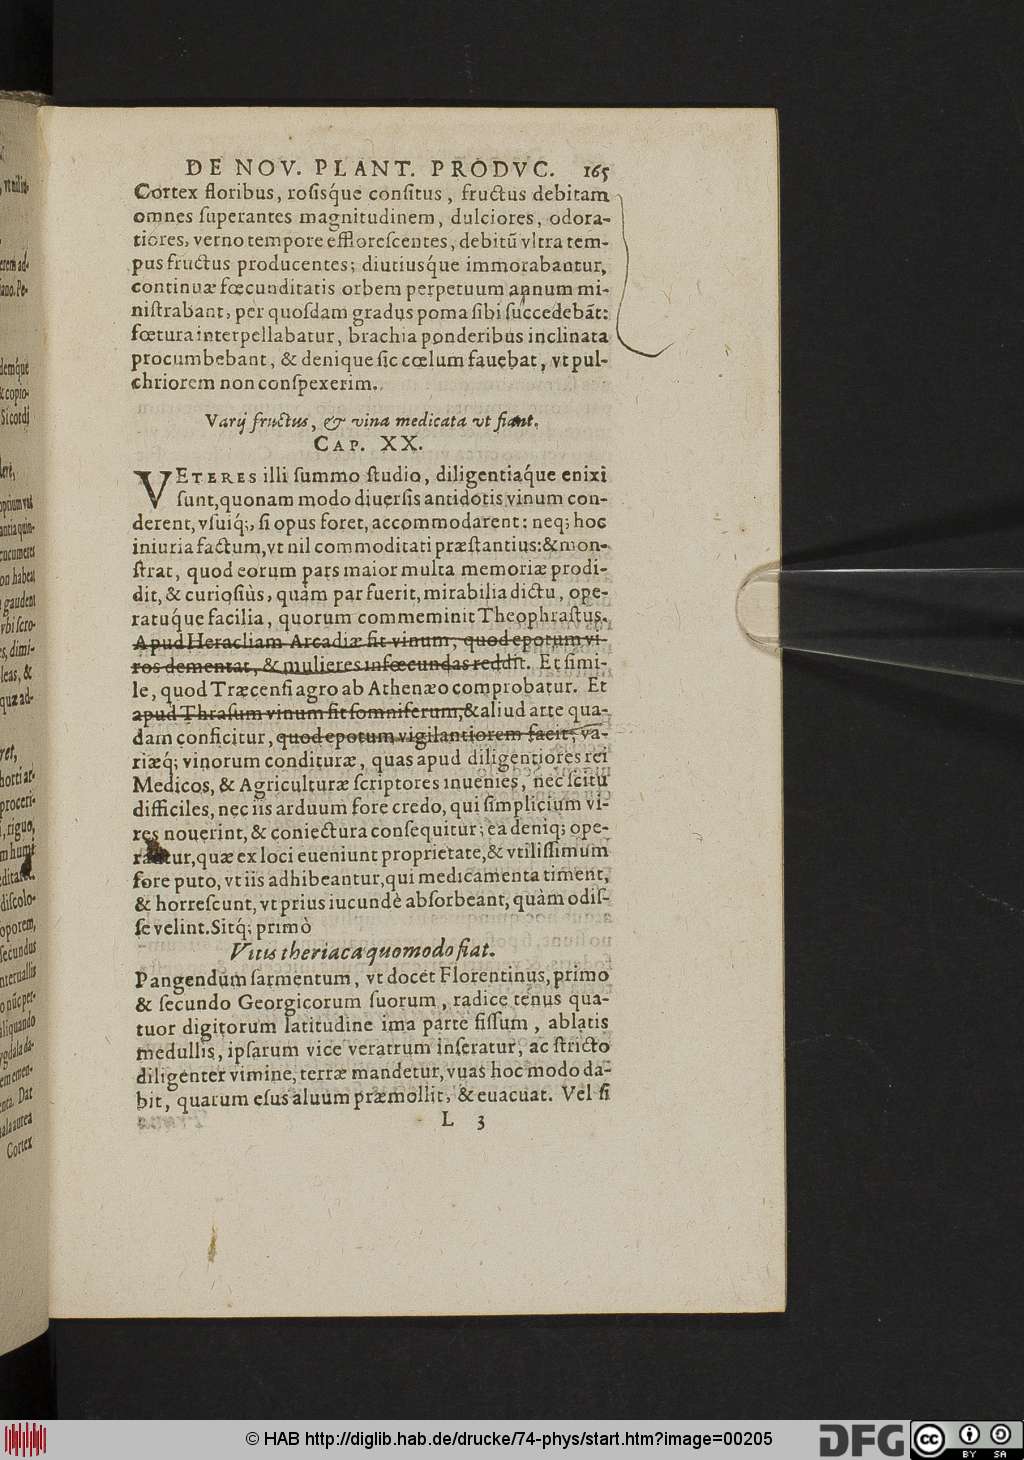 DE NOV. PLANT. PRODVC. 165
Cortex floribus, roſisq́ue conſitus, fructus debitam
omnes ſuperantes magnitudinem, dulciores, odora-
tiores, verno tempore effloreſcentes, debitū vltra tem-
pus fructus producentes; diutiusq́ue immorabantur,
continuæ fœcunditatis orbem perpetuum annum mi-
niſtrabant, per quoſdam gradus poma ſibi ſuccedebāt:
fœtura interpellabatur, brachia ponderibus inclinata
procumbebant, & denique ſic cœlum fauebat, vt pul-
chriorem non conſpexerim.
Varij fructus, & vina medicata vt fiant.
CAP. XX.
VETERES illi ſummo ſtudio, diligentiaq́ue enixi
ſunt, quonam modo diuerſis antidotis vinum con-
derent, vſuiq́;, ſi opus foret, accommodarent: neq; hoc
iniuria factum, vt nil commoditati præſtantius: & mon-
ſtrat, quod eorum pars maior multa memoriæ prodi-
dit, & curioſiùs, quàm par fuerit, mirabilia dictu, ope-
ratuq́ue facilia, quorum commeminit Theophraſtus.
Apud Heracliam Arcadiæ fit vinum, quod epotum vi-
ros dementat, & mulieres infœcundas reddit. Et ſimi-
le, quod Træcenſi agro ab Athenæo comprobatur. Et
apud Thraſum vinum fit ſomniferum, & aliud arte qua-
dam conficitur, quod epotum vigilantiorem facit; va-
riæq́; vinorum condituræ, quas apud diligentiores rei
Medicos, & Agriculturæ ſcriptores inuenies, nec ſcitu
difficiles, nec iis arduum fore credo, qui ſimplicium vi-
res nouerint, & coniectura conſequitur; ea deniq; ope-
rantur, quæ ex loci eueniunt proprietate, & vtiliſſimum
fore puto, vt iis adhibeantur, qui medicamenta timent,
& horreſcunt, vt prius iucundè abſorbeant, quàm odiſ-
ſe velint. Sitq́; primò
Vitis theriaca quomodo fiat.
Pangendum ſarmentum, vt docet Florentinus, primo
& ſecundo Georgicorum ſuorum, radice tenus qua-
tuor digitorum latitudine ima parte fiſſum, ablatis
medullis, ipſarum vice veratrum inſeratur, ac ſtricto
diligenter vimine, terræ mandetur, vuas hoc modo da-
bit, quarum eſus aluum præmollit, & euacuat. Vel ſi
L 3
© HAB http://diglib.hab.de/drucke/74-phys/start.htm?image=00205
DFG
cc BY SA